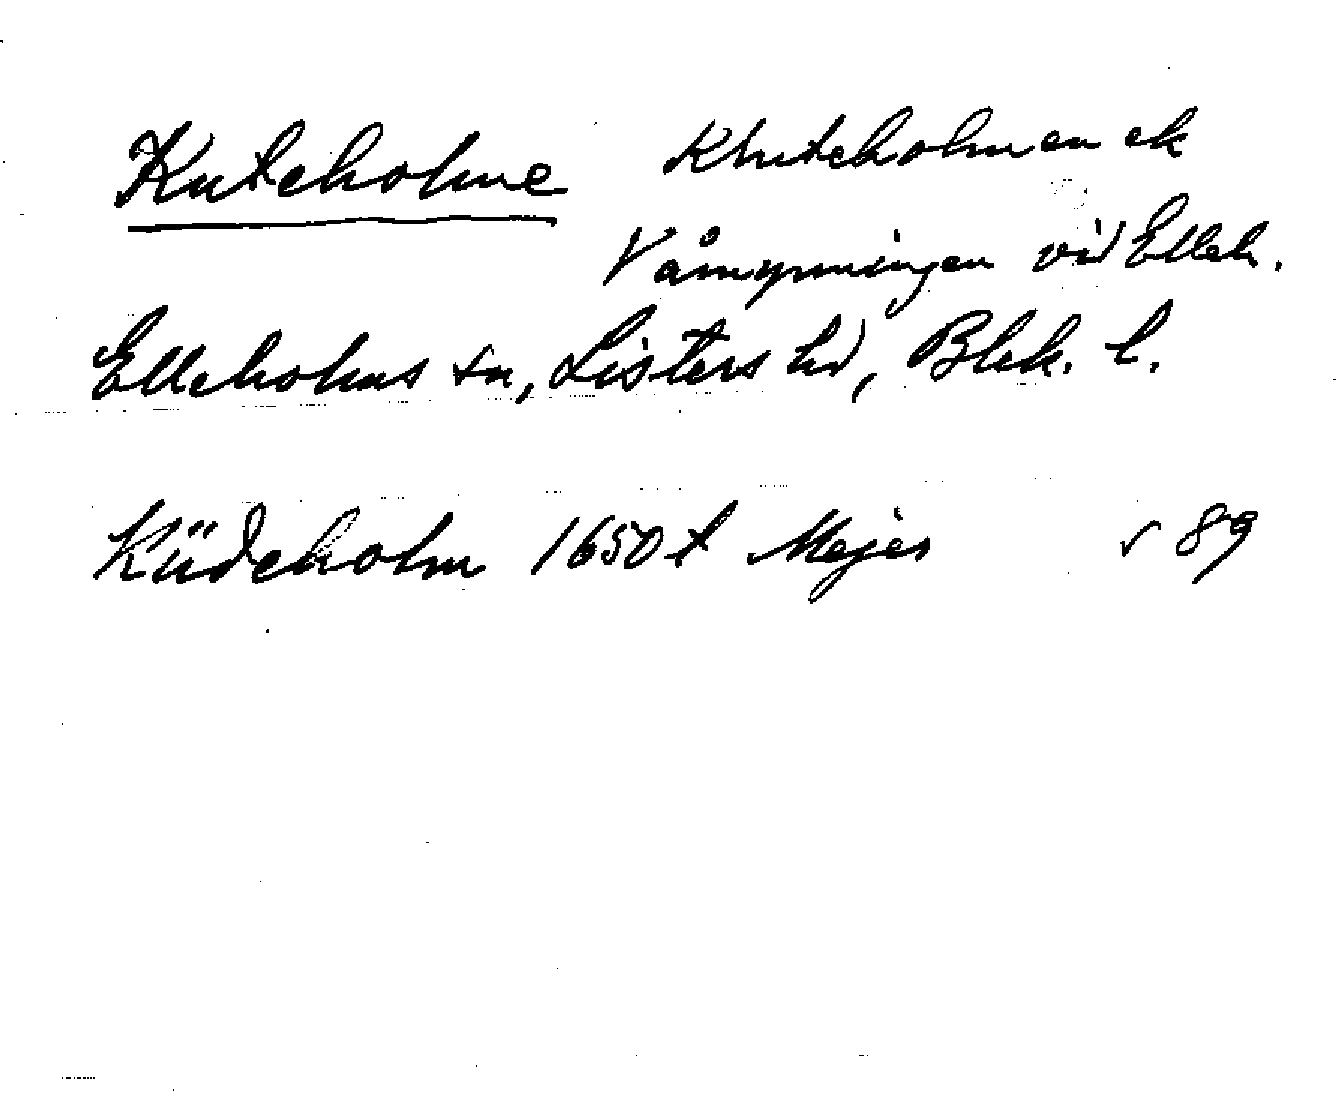 Kuteholme Khuteholmen ek
V åmynningen vid Elleh.
Elleholms sn, Listers hd, Blek. l.
Küdeholm 1650 t Mejer v 89